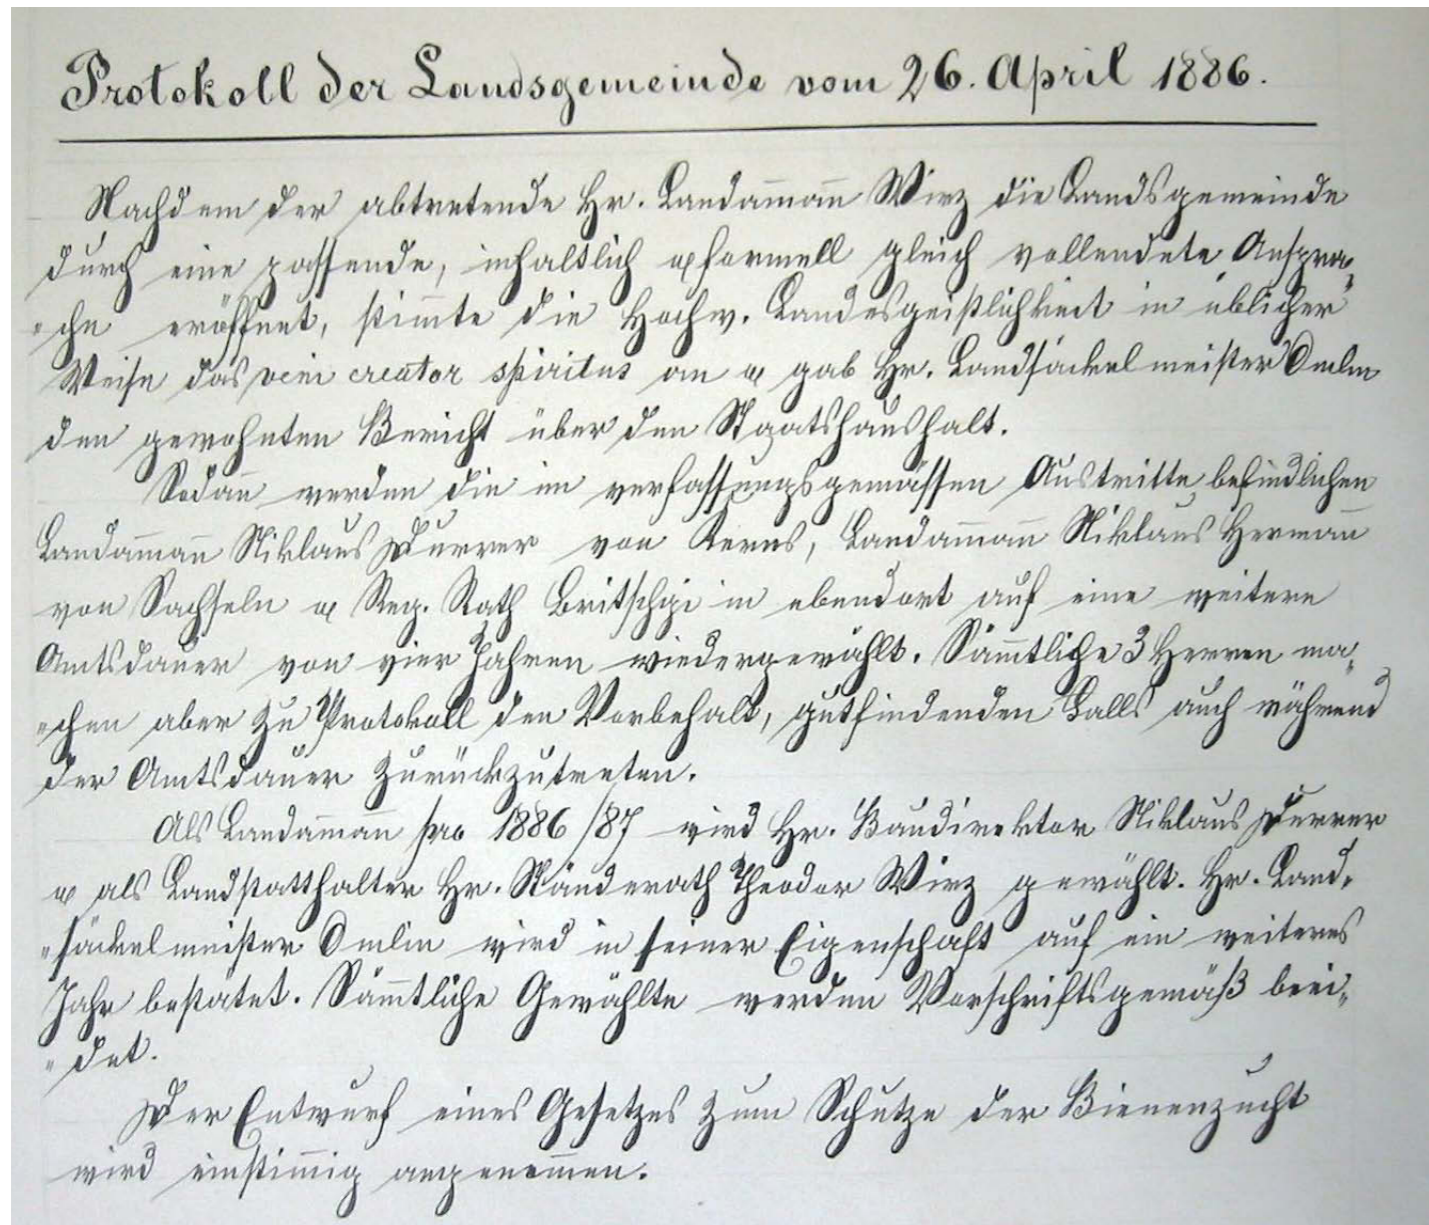 Protokoll der Landsgemeinde vom 26. April 1886.
Nachdem der abtretende Hr. Landam̅an̅ Wirz die Landsgemeinde
durch eine passende, inhaltlich & formell gleich vollendete Anspra„
„che eröffnet, stim̅te die Hochw. Landesgeistlichkeit in üblicher
Weise das veni creator spiritus an & gab Hr. Landsäckelmeister Omlin
den gewohnten Bericht über den Staatshaushalt.
Sodan̅ werden die im verfassungsgemässen Austritte befindlichen
Landam̅an̅ Niklaus Durrer von Kerns, Landam̅an̅ Niklaus Herman̅
von Sachseln & Reg. Rath Britschgi in ebendort auf eine weitere
Amtsdauer von vier Jahren wiedergewählt. Säm̅tliche 3 Herren ma„
„chen aber zu Protokoll den Vorbehalt, gutfindenden Falls auch während
der Amtsdauer zurückzutreten.
Als Landam̅an̅ pro 1886/87 wird Hr. Baudirektor Niklaus Durrer
& als Landstatthalter Hr. Ständerath Theodor Wirz gewählt. Hr. Land„
„säckelmeister Omlin wird in seiner Eigenschaft auf ein weiteres
Jahr bestätet. Säm̅tliche Gewählte werden Vorschriftsgemäß beei„
„det.
Der Entwurf eines Gesetzes zum Schutze der Bienenzucht
wird einstim̅ig angenom̅en.